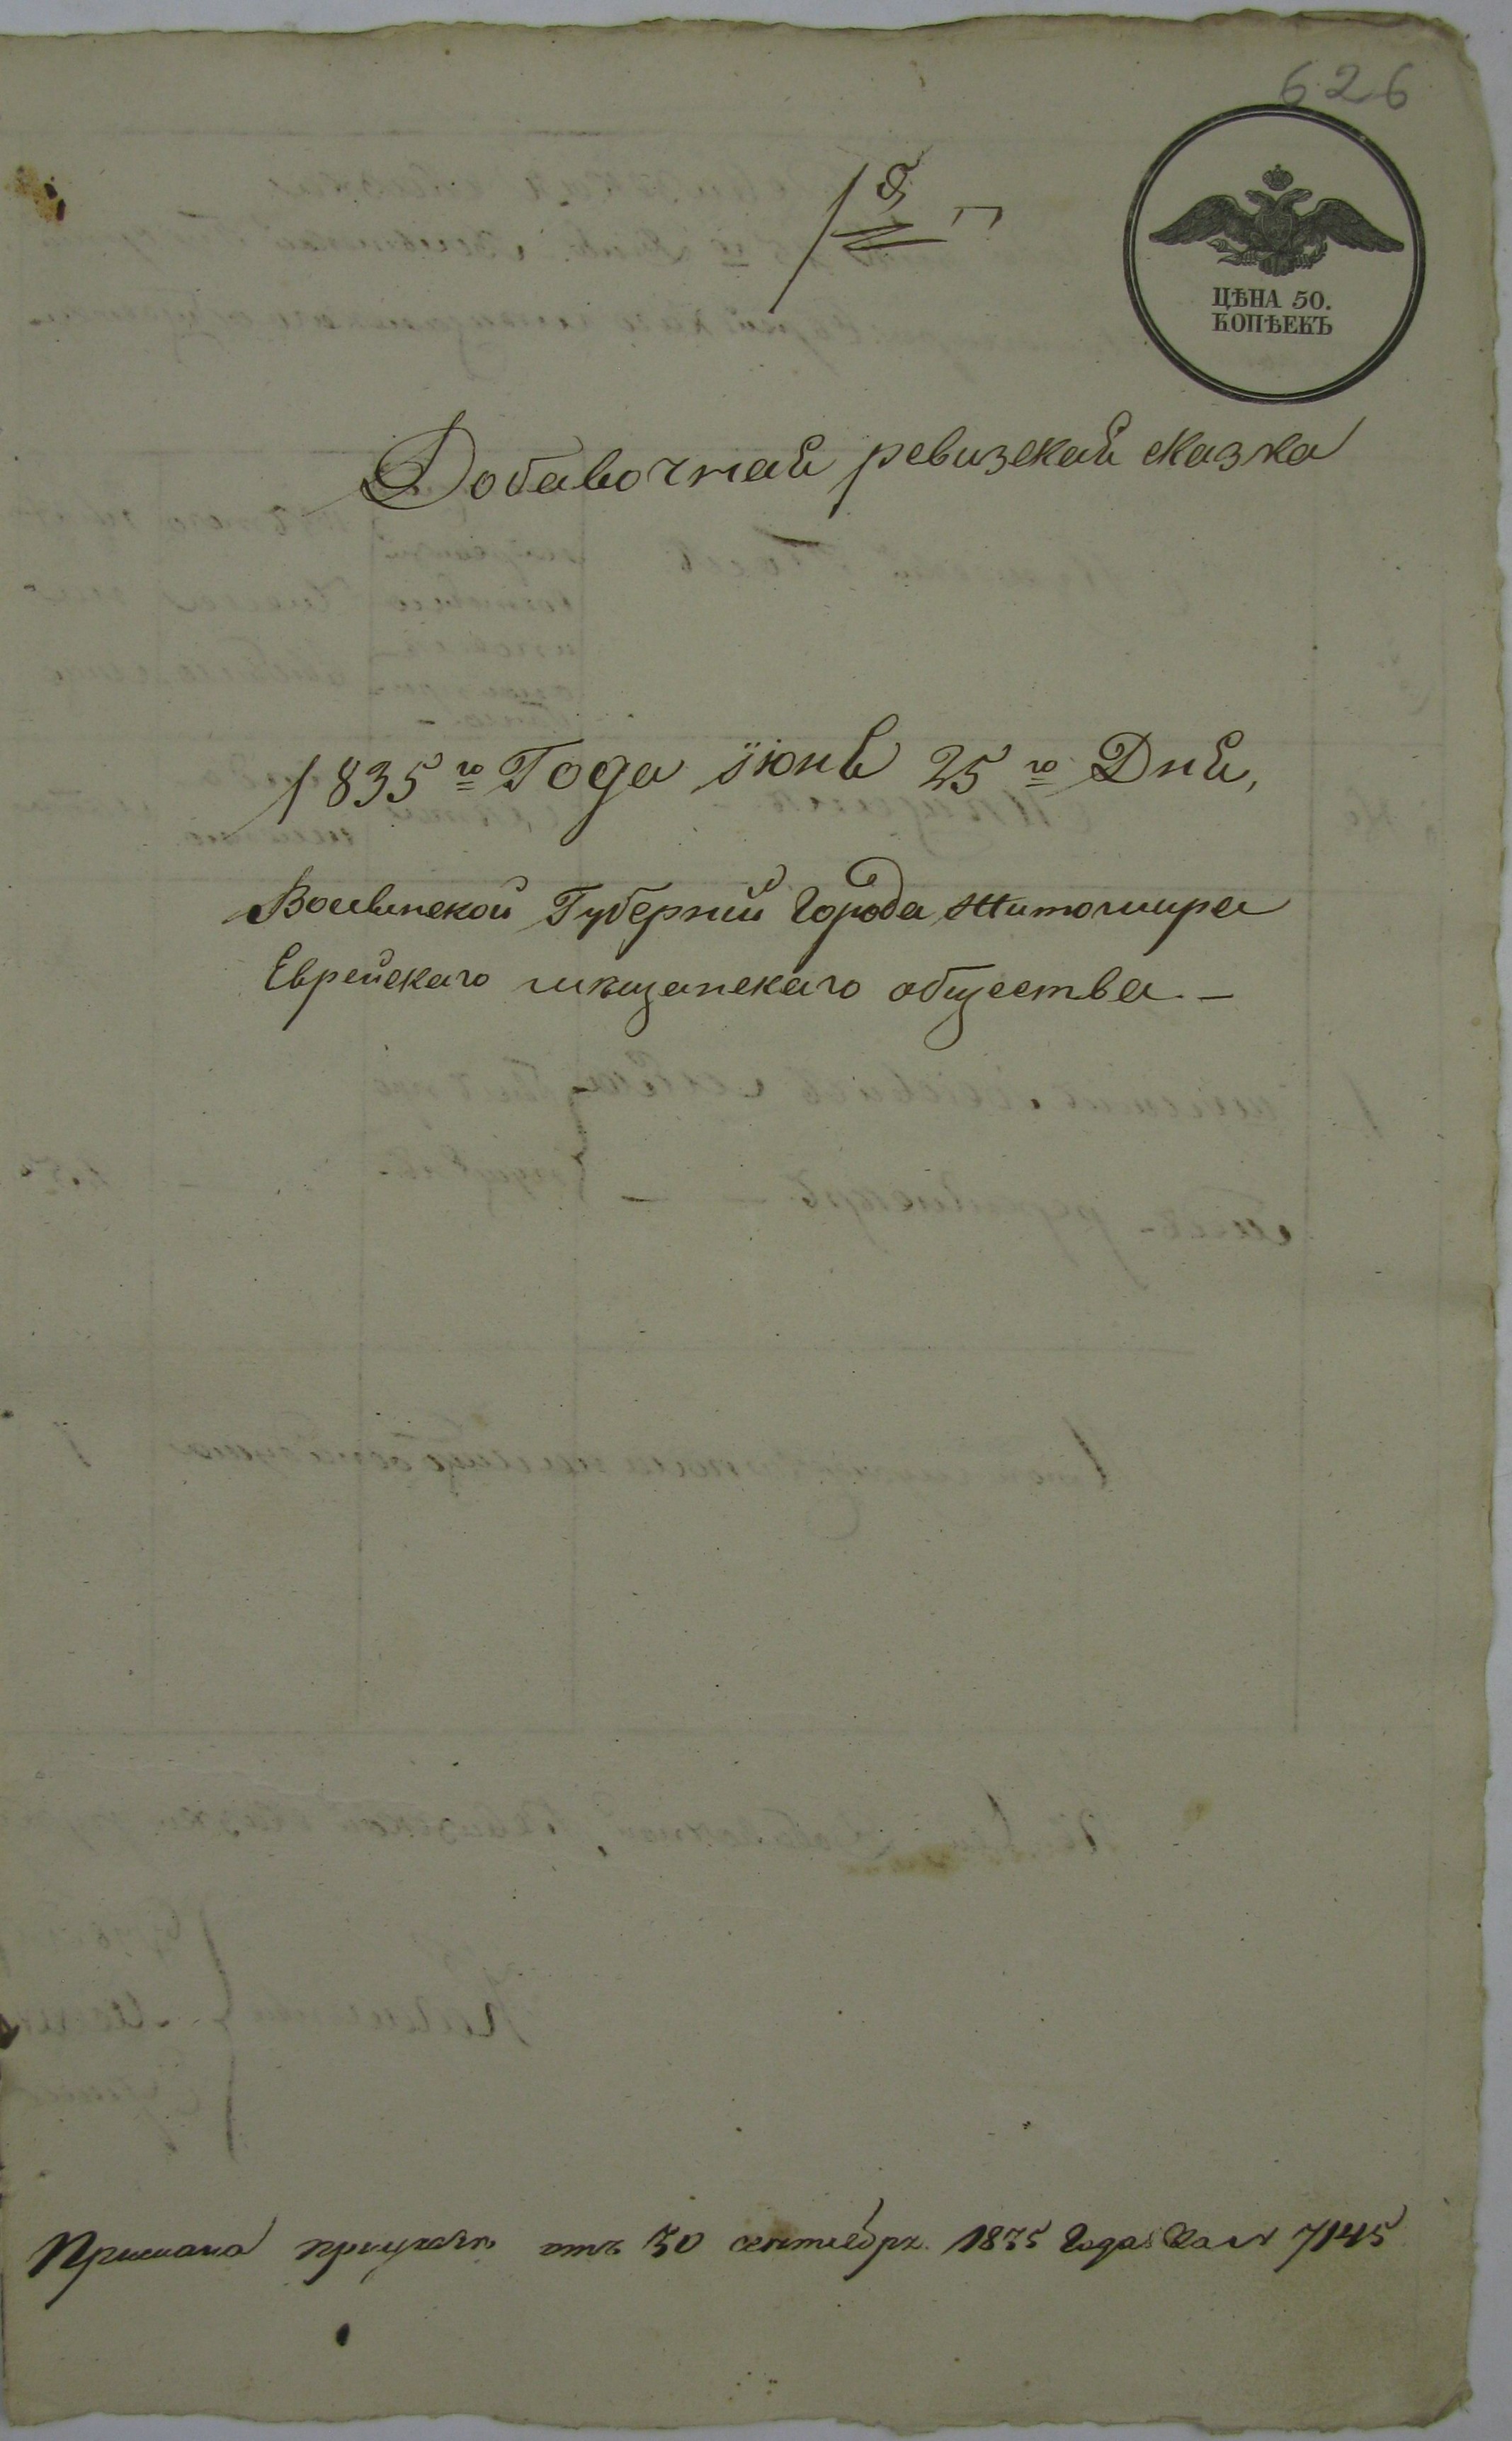 626
ЦѢНА 50.
КОПѢЕКЪ
Добавочная ревизская сказка
1835го Года Июня 25го Дня,
Волынской Губернии Города Житомира
Еврейскаго мѣщанскаго общества. —
Прислана при указѣ отъ 30 сентября 1835 Года за № 7145